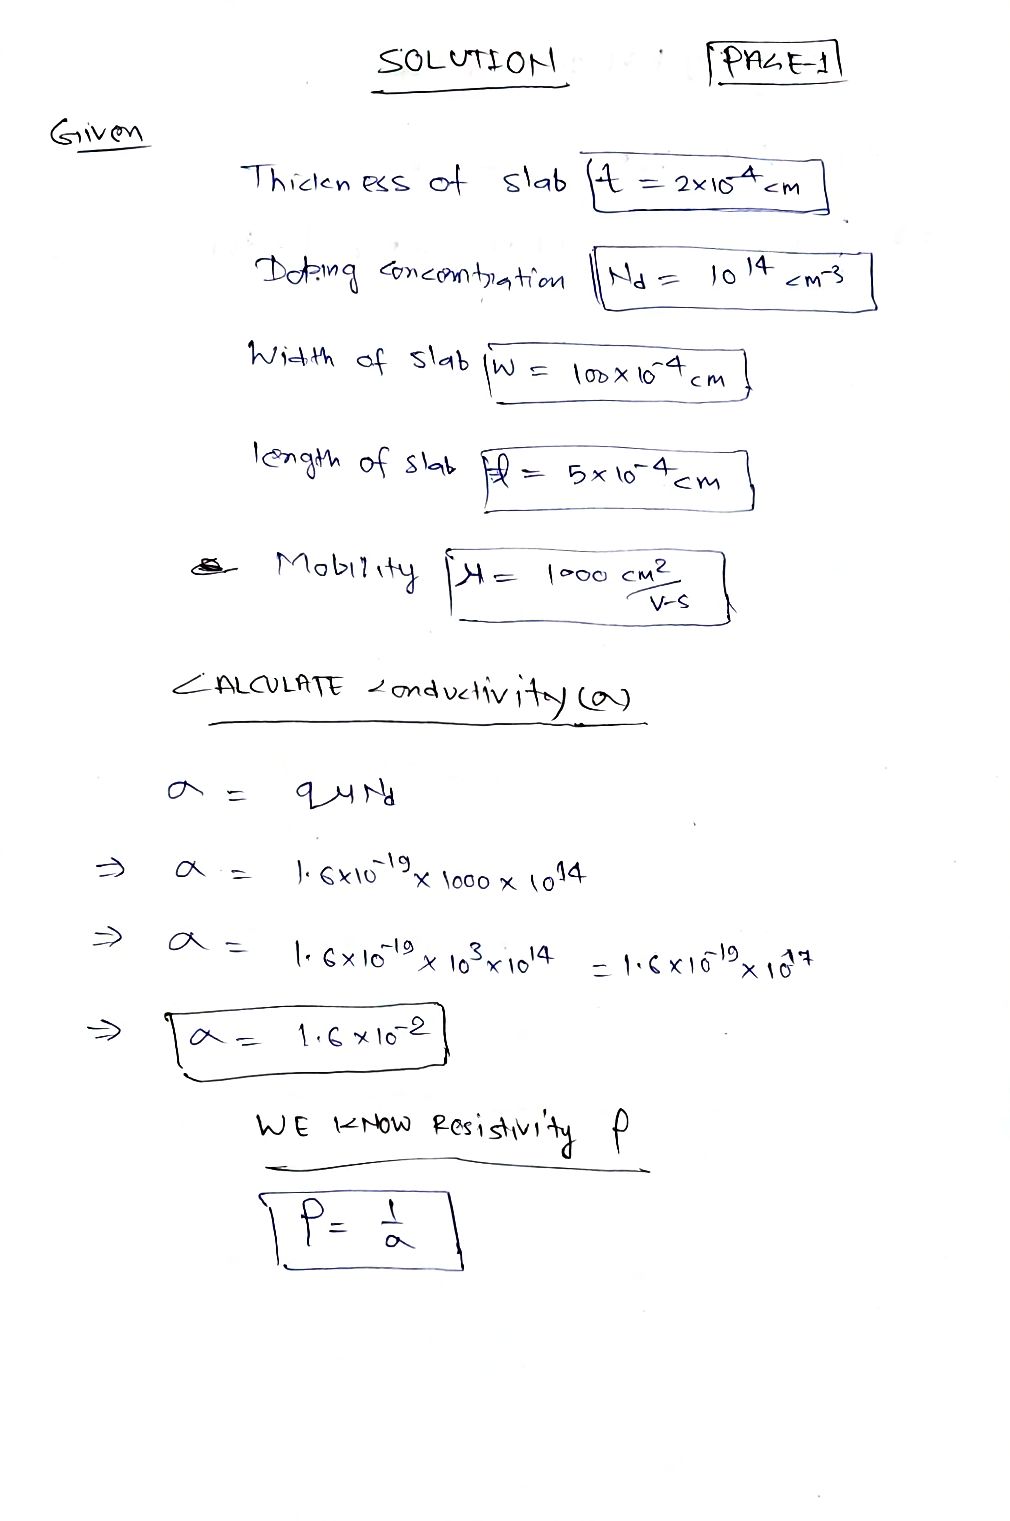 SOLUTION PAGE-1
Given
Thickness of slab t = 2×10⁻⁴ cm
Doping concentration Nd = 10¹⁴ cm⁻³
Width of slab W = 100×10⁻⁴ cm
length of slab l = 5×10⁻⁴ cm
Mobility μ = 1000 cm²/V-S
CALCULATE conductivity (σ)
σ = qμNd
⇒ σ = 1.6×10⁻¹⁹ × 1000 × 10¹⁴
⇒ σ = 1.6×10⁻¹⁹ × 10³ × 10¹⁴ = 1.6×10⁻¹⁹ × 10¹⁷
⇒ σ = 1.6×10⁻²
WE KNOW Resistivity ρ
ρ = 1/σ